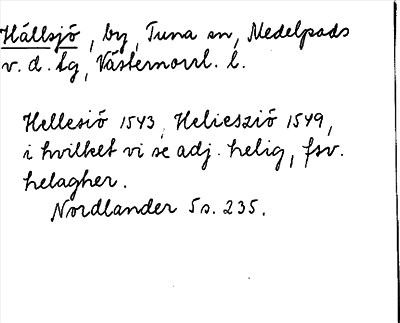 Hällsjö, by, Tuna sn, Medelpads
v. d. tg, Västernorrl. l.
Hellesiö 1543, Heliessiö 1549,
i hvilket vi se adj. helig, fsv.
helagher.
Nordlander 5 s. 235.